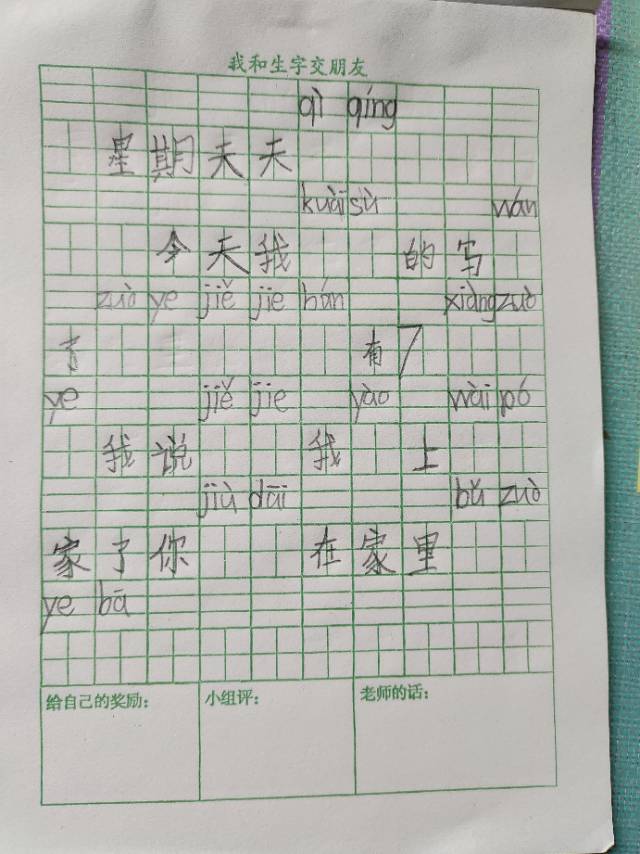 我和生字交朋友
qì qíng
星期天天
kuài sù wán
今天我 的写
zuò ye jiě jie bán xiàng zuò
了 有
ye jiě jie yào wài pó
我说 我 上
jiù dāi bǔ zuò
家了你 在家里
ye bā
给自己的奖励: 小组评: 老师的话: